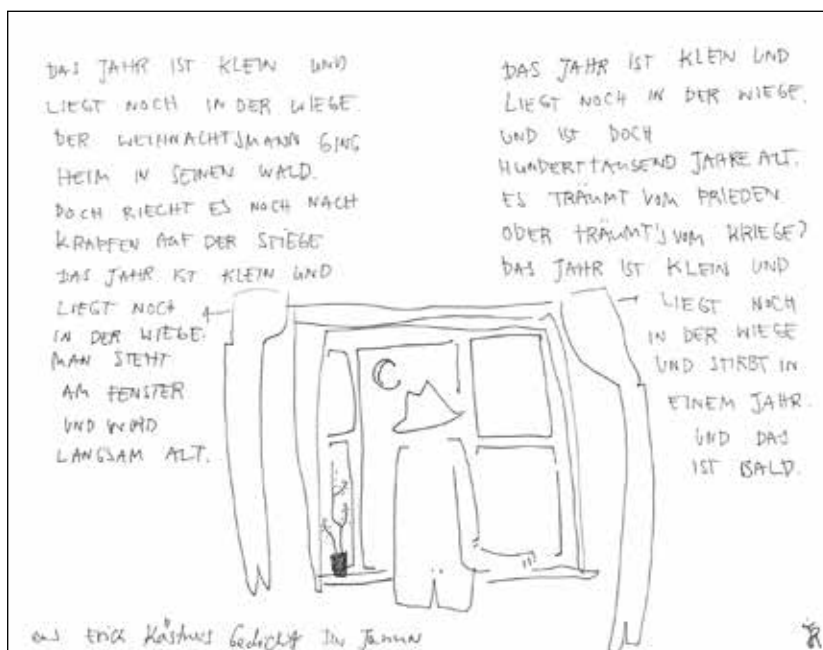 DAS JAHR IST KLEIN UND
LIEGT NOCH IN DER WIEGE.
DER WEIHNACHTSMANN GING
HEIM IN SEINEN WALD.
DOCH RIECHT ES NOCH NACH
KRAPFEN AUF DER STIEGE
DAS JAHR IST KLEIN UND
LIEGT NOCH
IN DER WIEGE.
MAN STEHT
AM FENSTER
UND WIRD
LANGSAM ALT.
DAS JAHR IST KLEIN UND
LIEGT NOCH IN DER WIEGE.
UND IST DOCH
HUNDERTTAUSEND JAHRE ALT.
ES TRÄUMT VOM FRIEDEN
ODER TRÄUMT'S VOM KRIEGE?
DAS JAHR IST KLEIN UND
LIEGT NOCH
IN DER WIEGE
UND STIRBT IN
EINEM JAHR.
UND DAS
IST BALD.
aus Erich Kästners Gedicht Der Januar